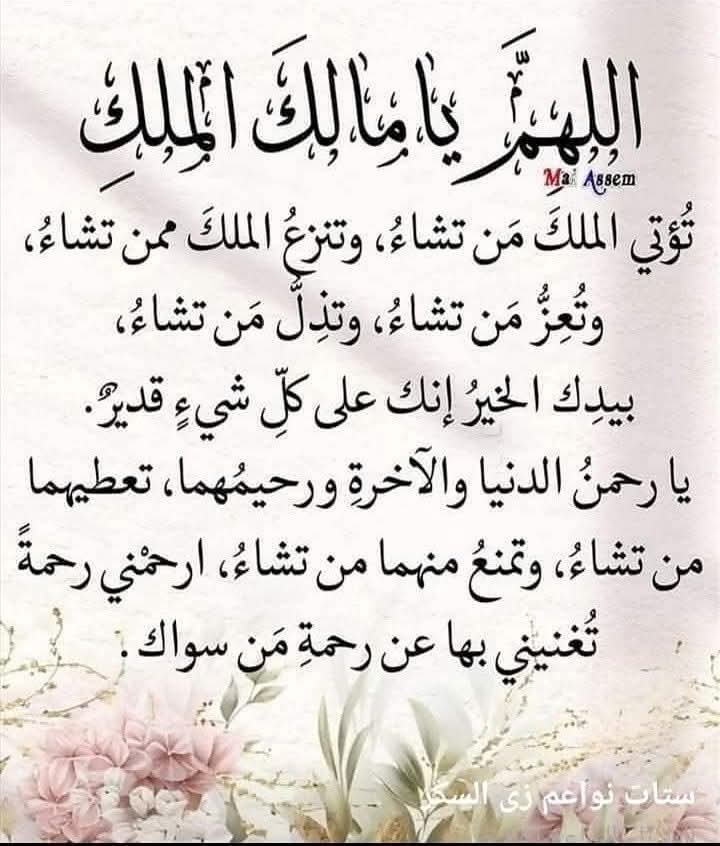 اللهمَّ يا مالكَ الملكِ
Mai Assem
تُؤتي الملكَ مَن تشاءُ، وتنزعُ الملكَ ممن تشاءُ،
وتُعِزُّ مَن تشاءُ، وتذِلُّ مَن تشاءُ،
بيدِك الخيرُ إنك على كلِّ شيءٍ قديرٌ.
يا رحمنُ الدنيا والآخرةِ ورحيمُهما، تعطيهما
من تشاءُ، وتمنعُ منهما من تشاءُ، ارحمْني رحمةً
تُغنيني بها عن رحمةِ مَن سواك.
ستات نواعم زى السكر